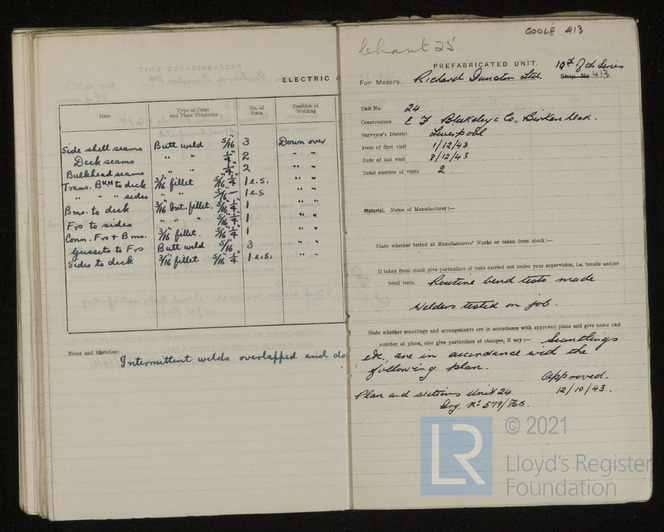 ELECTRIC
Item Type of Joint and Plate Thickness No. of Runs Position of Welding
Side shell seams Butt weld 5/16" 3 Down over
Deck seams " " 1/4" 2 " "
Bulkhead seams " " 1/4" 2 " "
Trans. Bkh to deck 3/16 fillet 5/16" 1/4" 1 e.s. " "
" " " sides " " 5/16" 1 e.s. " "
Bms. to deck 3/16 Int. fillet. 5/16" 1/4" 1 " "
Frs to sides " " " 5/16" 1/4" 1 " "
Conn. Frs & Bms. 3/16 fillet. 5/16" 1/4" 1 " "
Gussets to Frs Butt weld 5/16" 3 " "
Sides to deck 3/16 fillet 5/16" 1/4" 1 e.s. " "
Notes and Sketches:
Intermittent welds overlapped and do
GOOLE 413
Chant 25
PREFABRICATED UNIT.
For Messrs. Richard Dunston Ltd. Ship No 413
Unit No. 24
Constructors Birkenhead.
Surveyor's District Liverpool
Date of first visit 1/12/43
Date of last visit 8/12/43
Total number of visits 2.
Material. Name of Manufacturer:—
State whether tested at Manufacturers' Works or taken from stock:—
If taken from stock give particulars of tests carried out under your supervision, i.e. tensile and/or
bend tests. Routine bend tests made
Welders tested on job.
State whether scantlings and arrangements are in accordance with approved plans and give name and
number of plan, also give particulars of changes, if any:— Scantlings
etc., are in accordance with the
following plan.
Approved.
Plan and sections Unit 24 12/10/43.
Drg. No 579/
© 2021
LR
Lloyd's Register
Foundation